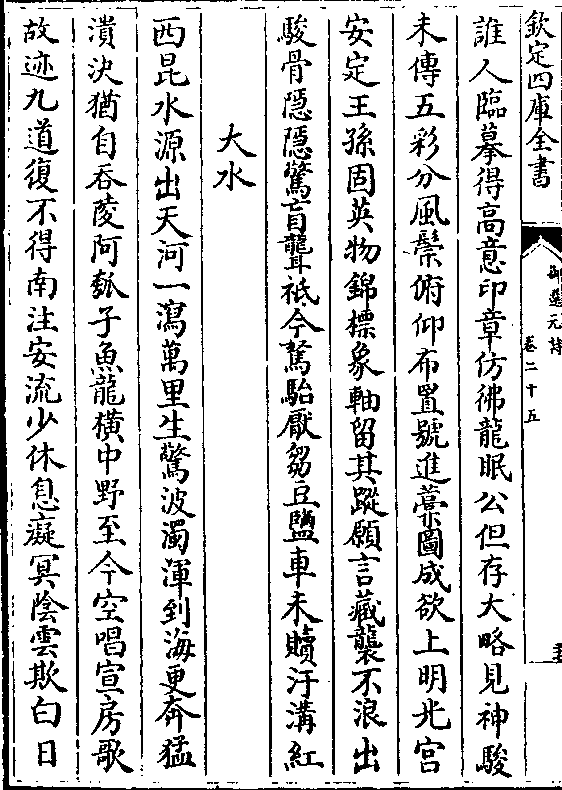 欽定四庫全書
御選元詩
卷二十五
誰人臨摹得高意印章仿彿龍眠公但存大略見神駿
未傳五彩分風鬃俯仰布置號進藁圖成欲上明光宮
安定王孫固英物錦標象軸留其蹤願言藏襲不浪出
駿骨隱隱驚盲聾祗今駑駘厭芻豆鹽車未贖汗溝紅
大水
西昆水源出天河一瀉萬里生驚波濁渾到海更奔猛
潰決猶自吞陵阿瓠子魚龍橫中野至今空唱宣房歌
故迹九道復不得南注安流少休息癡冥陰雲欺白日